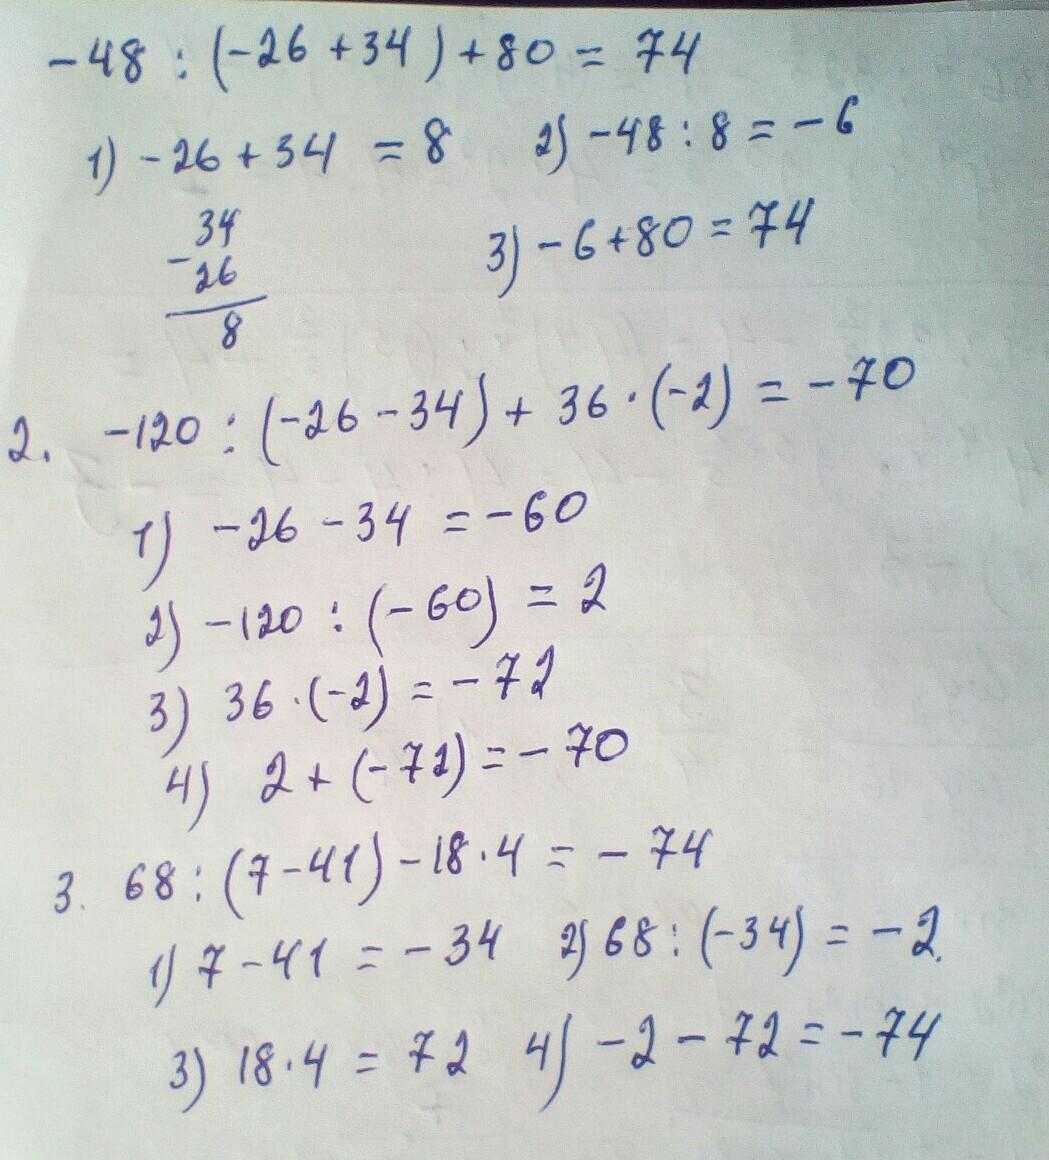 -48 : (-26 + 34) + 80 = 74
1) -26 + 34 = 8 2) -48 : 8 = -6
34
- 26
8
3) -6 + 80 = 74
2. -120 : (-26 - 34) + 36 · (-2) = -70
1) -26 - 34 = -60
2) -120 : (-60) = 2
3) 36 · (-2) = -72
4) 2 + (-72) = -70
3. 68 : (7 - 41) - 18 · 4 = -74
1) 7 - 41 = -34 2) 68 : (-34) = -2.
3) 18 · 4 = 72 4) -2 - 72 = -74